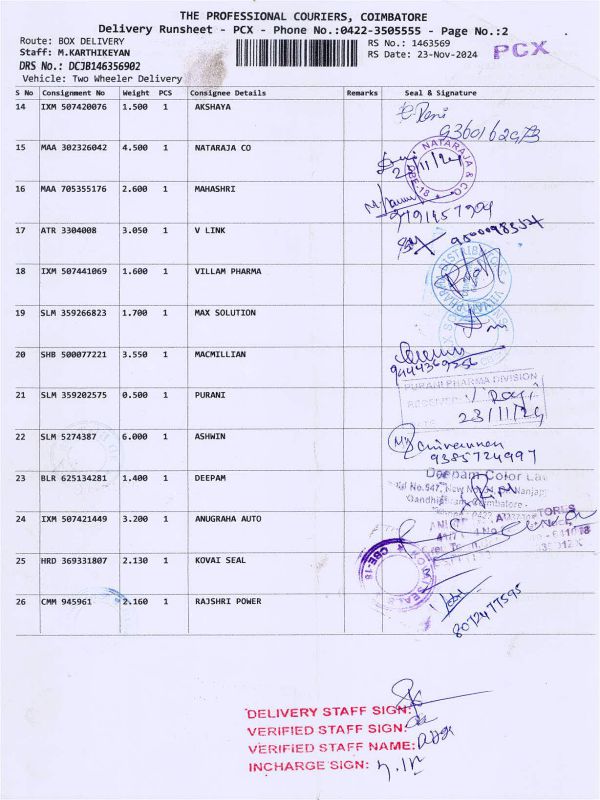 THE PROFESSIONAL COURIERS, COIMBATORE
Delivery Runsheet - PCX - Phone No.:0422-3505555 - Page No.:2
Route: BOX DELIVERY RS No.: 1463569 PCX
Staff: M.KARTHIKEYAN RS Date: 23-Nov-2024
DRS No.: DCJB146356902
Vehicle: Two Wheeler Delivery
S No Consignment No Weight PCS Consignee Details Remarks Seal & Signature
14 IXM 507420076 1.500 1 AKSHAYA
15 MAA 302326042 4.500 1 NATARAJA CO
NATARAJA & CO
CBE-18
16 MAA 705355176 2.600 1 MAHASHRI
17 ATR 3304008 3.050 1 V LINK
18 IXM 507441069 1.600 1 VILLAM PHARMA
19 SLM 359266823 1.700 1 MAX SOLUTION
20 SHB 500077221 3.550 1 MACMILLIAN
9444369256
21 SLM 359202575 0.500 1 PURANI
PURANI PHARMA DIVISION
RECEIVED
23/11/24
22 SLM 5274387 6.000 1 ASHWIN
9385724997
23 BLR 625134281 1.400 1 DEEPAM
Deepam Color La
No.547, New
24 IXM 507421449 3.200 1 ANUGRAHA AUTO
25 HRD 369331807 2.130 1 KOVAI SEAL
CBE-18
26 CMM 945961 2.160 1 RAJSHRI POWER
8072477595
DELIVERY STAFF SIGN:
VERIFIED STAFF SIGN:
VERIFIED STAFF NAME:
INCHARGE SIGN: